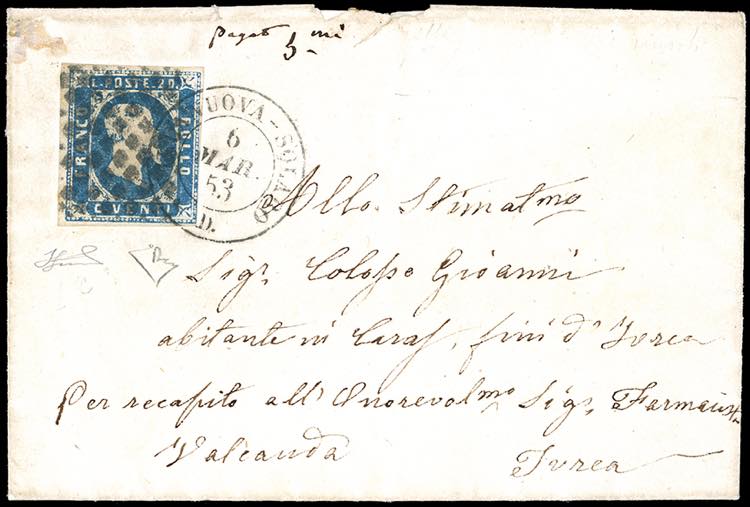 Pagato 5 mi
C. POSTE. 20.
FRANCO
BOLLO
C. VENTI
UOVA-SOLARO
6
MAR.
53
D.
Allo Stimatmo
Sigr Colosso Gioanni
abitante in fini d' Ivrea
Per recapito all' Onorevolmo Sigr Farmacista
Valcauda Ivrea